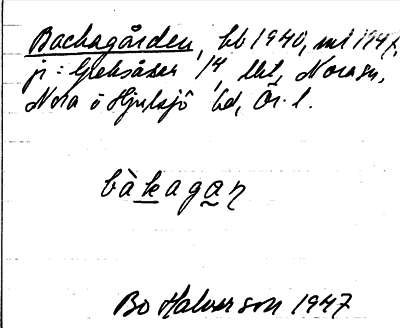 Backagården, bb 1940, ml 1947,
jr: Greksåsar 1/4, lbt, Nora sn,
Nora o Hjulsjö bd, Ör. l.
bàkagaɳ
Bo Halvarson 1947